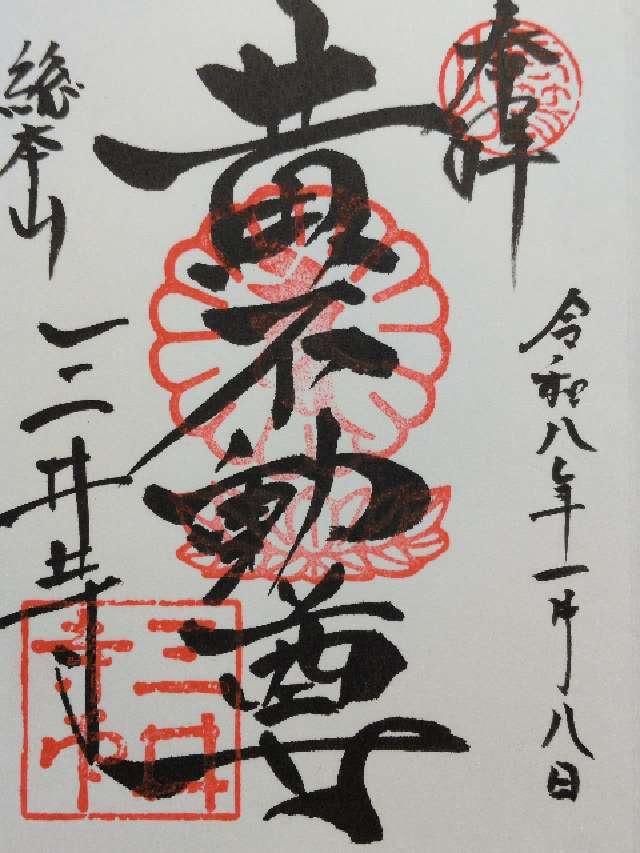 奉拝
令和八年一月八日
黄不動尊
総本山
三井寺
三井寺印